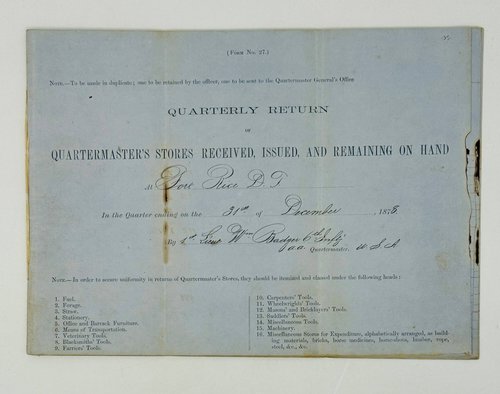 (Form No. 27.)
Note.—To be made in duplicate; one to be retained by the officer, one to be sent to the Quartermaster General's Office
QUARTERLY RETURN
OF
QUARTERMASTER'S STORES RECEIVED, ISSUED, AND REMAINING ON HAND
At Fort Rice D. T.
In the Quarter ending on the 31st of December, 1878.
By 1st Lieut Wm Badger 6th Infy
Quartermaster. U. S. A
Note.—In order to secure uniformity in returns of Quartermaster's Stores, they should be itemized and classed under the following heads:
1. Fuel.
2. Forage.
3. Straw.
4. Stationery.
5. Office and Barrack Furniture.
6. Means of Transportation.
7. Veterinary Tools.
8. Blacksmiths' Tools.
9. Farriers' Tools.
10. Carpenters' Tools.
11. Wheelwrights' Tools.
12. Masons' and Bricklayers' Tools.
13. Saddlers' Tools.
14. Miscellaneous Tools.
15. Machinery.
16. Miscellaneous Stores for Expenditure, alphabetically arranged, as build-
ing materials, bricks, horse medicines, horse-shoes, lumber, rope,
steel, &c., &c.